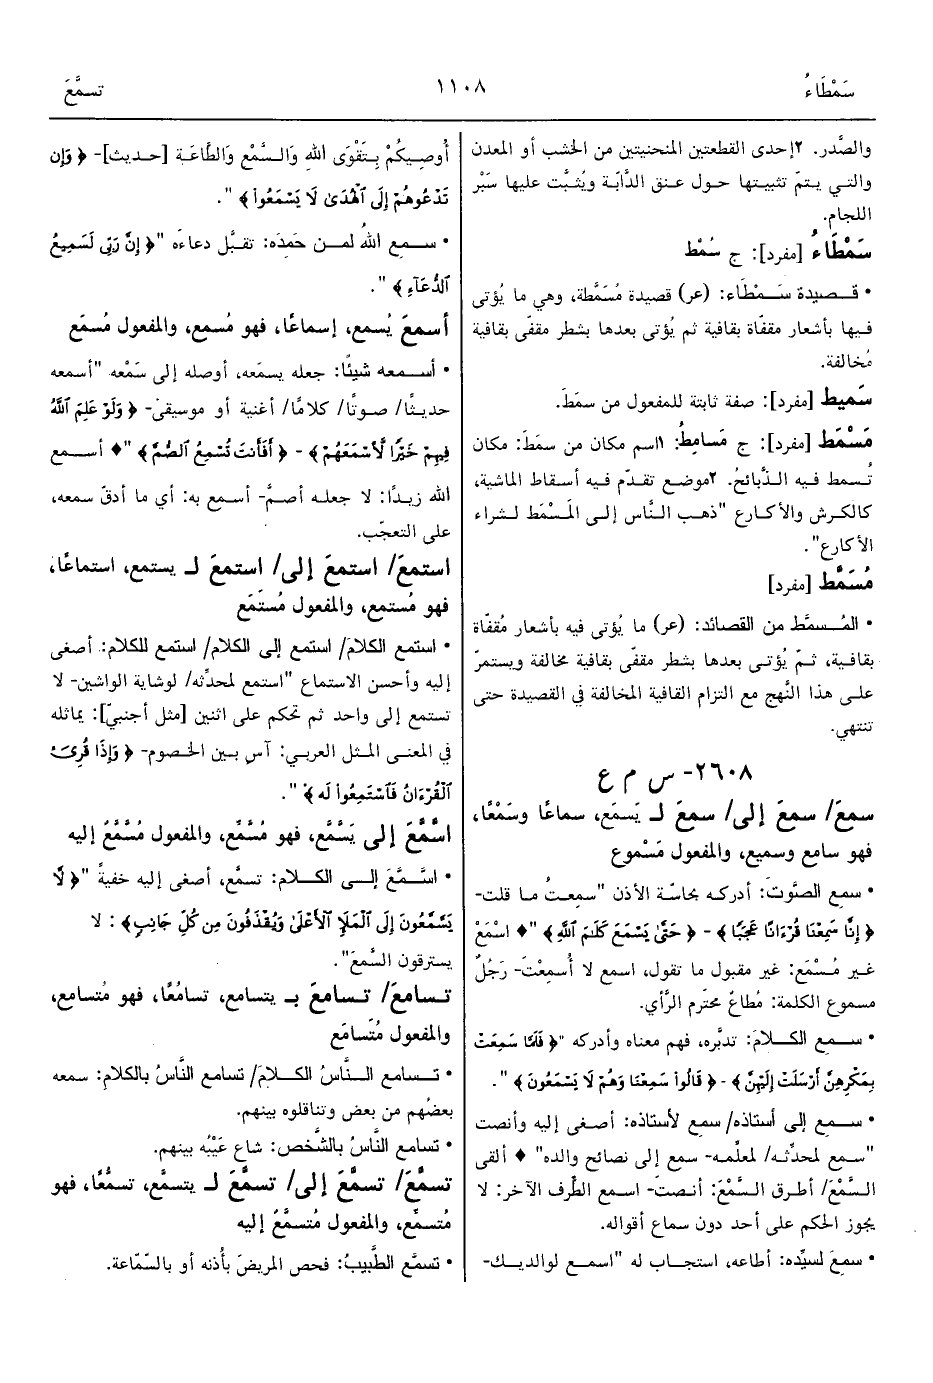 سَمْطَاءُ
١١٠٨
تسمَّعَ
والصَّدر. ٢إحدى القطعتين المنحنيتين من الخشب أو المعدن
والتي يتمّ تثبيتها حول عنق الدَّابَة ويُثبَّت عليها سَيْر
اللجام.
سَمْطَاءُ [مفرد]: ج سُمْط
• قـصيدة سَـمْطَاء: (عر) قصيدة مُسَمَّطة، وهي ما يُؤتى
فيها بأشعار مقفّاة بقافية ثم يُؤتى بعدها بشطر مقفّى بقافية
مُخالفة.
سَميط [مفرد]: صفة ثابتة للمفعول من سمَطَ.
مَسْمَط [مفرد]: ج مَسامِطُ: ١اسم مكان من سمَطَ: مكان
تُسمط فيه الذَّبائحُ. ٢موضع تقدّم فيه أسقاط الماشية،
كالكرش والأكارع "ذهب النَّاس إلى المَسْمَط لشراء
الأكارع".
مُسَمَّط [مفرد]
• المُـسمَّط من القصائد: (عر) ما يُؤتى فيه بأشعار مُقفّاة
بقافية، ثمّ يُؤتى بعدها بشطر مقفّى بقافية مخالفة ويستمرّ
على هذا النَّهج مع التزام القافية المخالفة في القصيدة حتى
تنتهي.
٢٦٠٨- س م ع
سمعَ/ سمعَ إلى/ سمعَ لـ يَسمَع، سماعًا وسَمْعًا،
فهو سامع وسميع، والمفعول مَسْموع
• سمع الصَّوتَ: أدركه بحاسّة الأذن "سمعتُ ما قلت-
﴿ إِنَّا سَمِعْنَا قُرْءَانًا عَجَبًا ﴾ - ﴿ حَتَّىٰ يَسْمَعَ كَلَٰمَ ٱللَّهِ ﴾ "♦ اسْمَعْ
غير مُسْمَع: غير مقبول ما تقول، اسمع لا أُسمِعْتَ- رَجُلٌ
مسموع الكلمة: مُطاعٌ محترَم الرَّأي.
• سـمع الكـلامَ: تدبَّره، فهم معناه وأدركه "﴿ فَلَمَّا سَمِعَتْ
بِمَكْرِهِنَّ أَرْسَلَتْ إِلَيْهِنَّ ﴾ - ﴿ قَالُوا سَمِعْنَا وَهُمْ لَا يَسْمَعُونَ ﴾ ".
• سـمع إلى أستاذه/ سمع لأستاذه: أصغى إليه وأنصت
"سـمع لمحدِّثه/ لمعلّمه- سمع إلى نصائح والده" ♦ ألقى
السَّمْعَ/ أطرق السَّمْعَ: أنصتَ- اسمع الطَّرف الآخر: لا
يجوز الحكم على أحد دون سماع أقواله.
• سمعَ لسيِّده: أطاعه، استجـاب له "اسمع لوالديك-
أُوصِيكُمْ بِتَقْوَى اللهِ وَالسَّمْعِ وَالطَّاعَة [حديث]- ﴿ وَإِن
تَدْعُوهُمْ إِلَى ٱلْهُدَىٰ لَا يَسْمَعُوا۟ ﴾ ".
• سـمع اللهُ لمـن حَمِدَه: تقبَّل دعاءَه "﴿ إِنَّ رَبِّى لَسَمِيعُ
ٱلدُّعَآءِ ﴾ ".
أسمعَ يُسمع، إسماعًا، فهو مُسمع، والمفعول مُسمَع
• أسـمعه شيئًا: جعله يسمَعه، أوصله إلى سَمْعه "أسمعه
حديثًا/ صوتًا/ كلامًا/ أغنية أو موسيقى- ﴿ وَلَوْ عَلِمَ ٱللَّهُ
فِيهِمْ خَيْرًا لَّأَسْمَعَهُمْ ﴾ - ﴿ أَفَأَنتَ تُسْمِعُ ٱلصُّمَّ ﴾ "♦ أسـمع
الله زيدًا: لا جعله أصمَّ- أسمع به: أي ما أدقّ سمعه،
على التعجّب.
استمعَ/ استمعَ إلى/ استمعَ لـ يستمع، استماعًا،
فهو مُستمع، والمفعول مُستمَع
• استمع الكلامَ/ استمع إلى الكلام/ استمع للكلام: أصغى
إليه وأحسن الاستماع "استمع لمحدثِّه/ لوشاية الواشين- لا
تستمع إلى واحد ثم تحكم على اثنين [مثل أجنبيّ]: يماثله
في المعنى المثل العربي: آسِ بين الخصوم- ﴿ وَإِذَا قُرِئَ
ٱلْقُرْءَانُ فَٱسْتَمِعُوا۟ لَهُ ﴾ ".
اسَّمَّعَ إلى يَسَّمَّع، فهو مُسَّمِّع، والمفعول مُسَّمَّعٌ إليه
• اسَّمَّعَ إلى الكلام: تسمَّع، أصغى إليه خفيةً "﴿ لَّا
يَسَّمَّعُونَ إِلَى ٱلْمَلَإِ ٱلْأَعْلَىٰ وَيُقْذَفُونَ مِن كُلِّ جَانِبٍ ﴾ : لا
يسترقون السَّمعَ".
تسامعَ/ تسامعَ بـ يتسامع، تسامُعًا، فهو مُتسامِع،
والمفعول مُتسامَع
• تـسامع النَّاسُ الكـلامَ/ تسامع النَّاسُ بالكلام: سمعه
بعضُهم من بعض وتناقلوه بينهم.
• تسامع النَّاسُ بالشَّخص: شاع عَيْبُه بينهم.
تسمَّعَ/ تسمَّعَ إلى/ تسمَّعَ لـ يتسمَّع، تسمُّعًا، فهو
مُتسمِّع، والمفعول مُتسمَّعٌ إليه
• تسمَّع الطَّبيبُ: فحص المريضَ بأُذنه أو بالسّمّاعة.